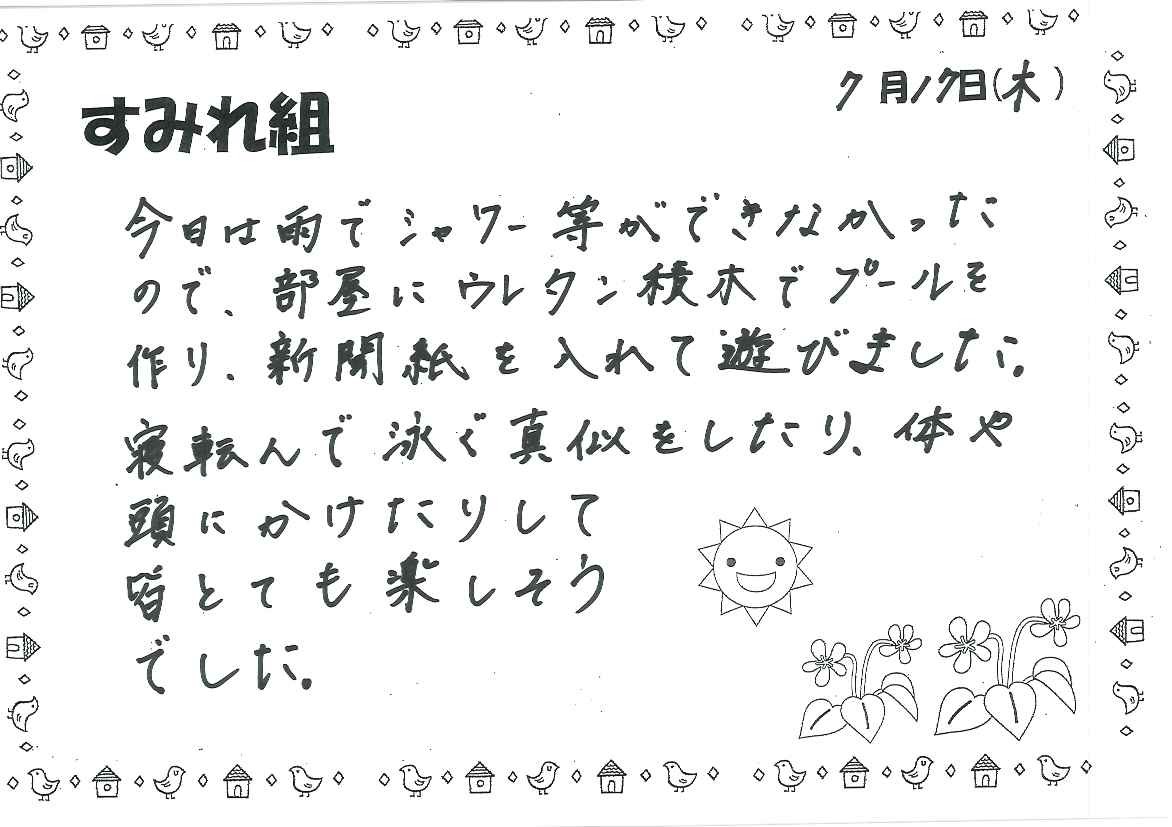 すみれ組
7月17日(木)
今日は雨でシャワー等ができなかった
ので、部屋にウレタン積木でプールを
作り、新聞紙を入れて遊びました。
寝転んで泳ぐ真似をしたり、体や
頭にかけたりして
皆とても楽しそう
でした。